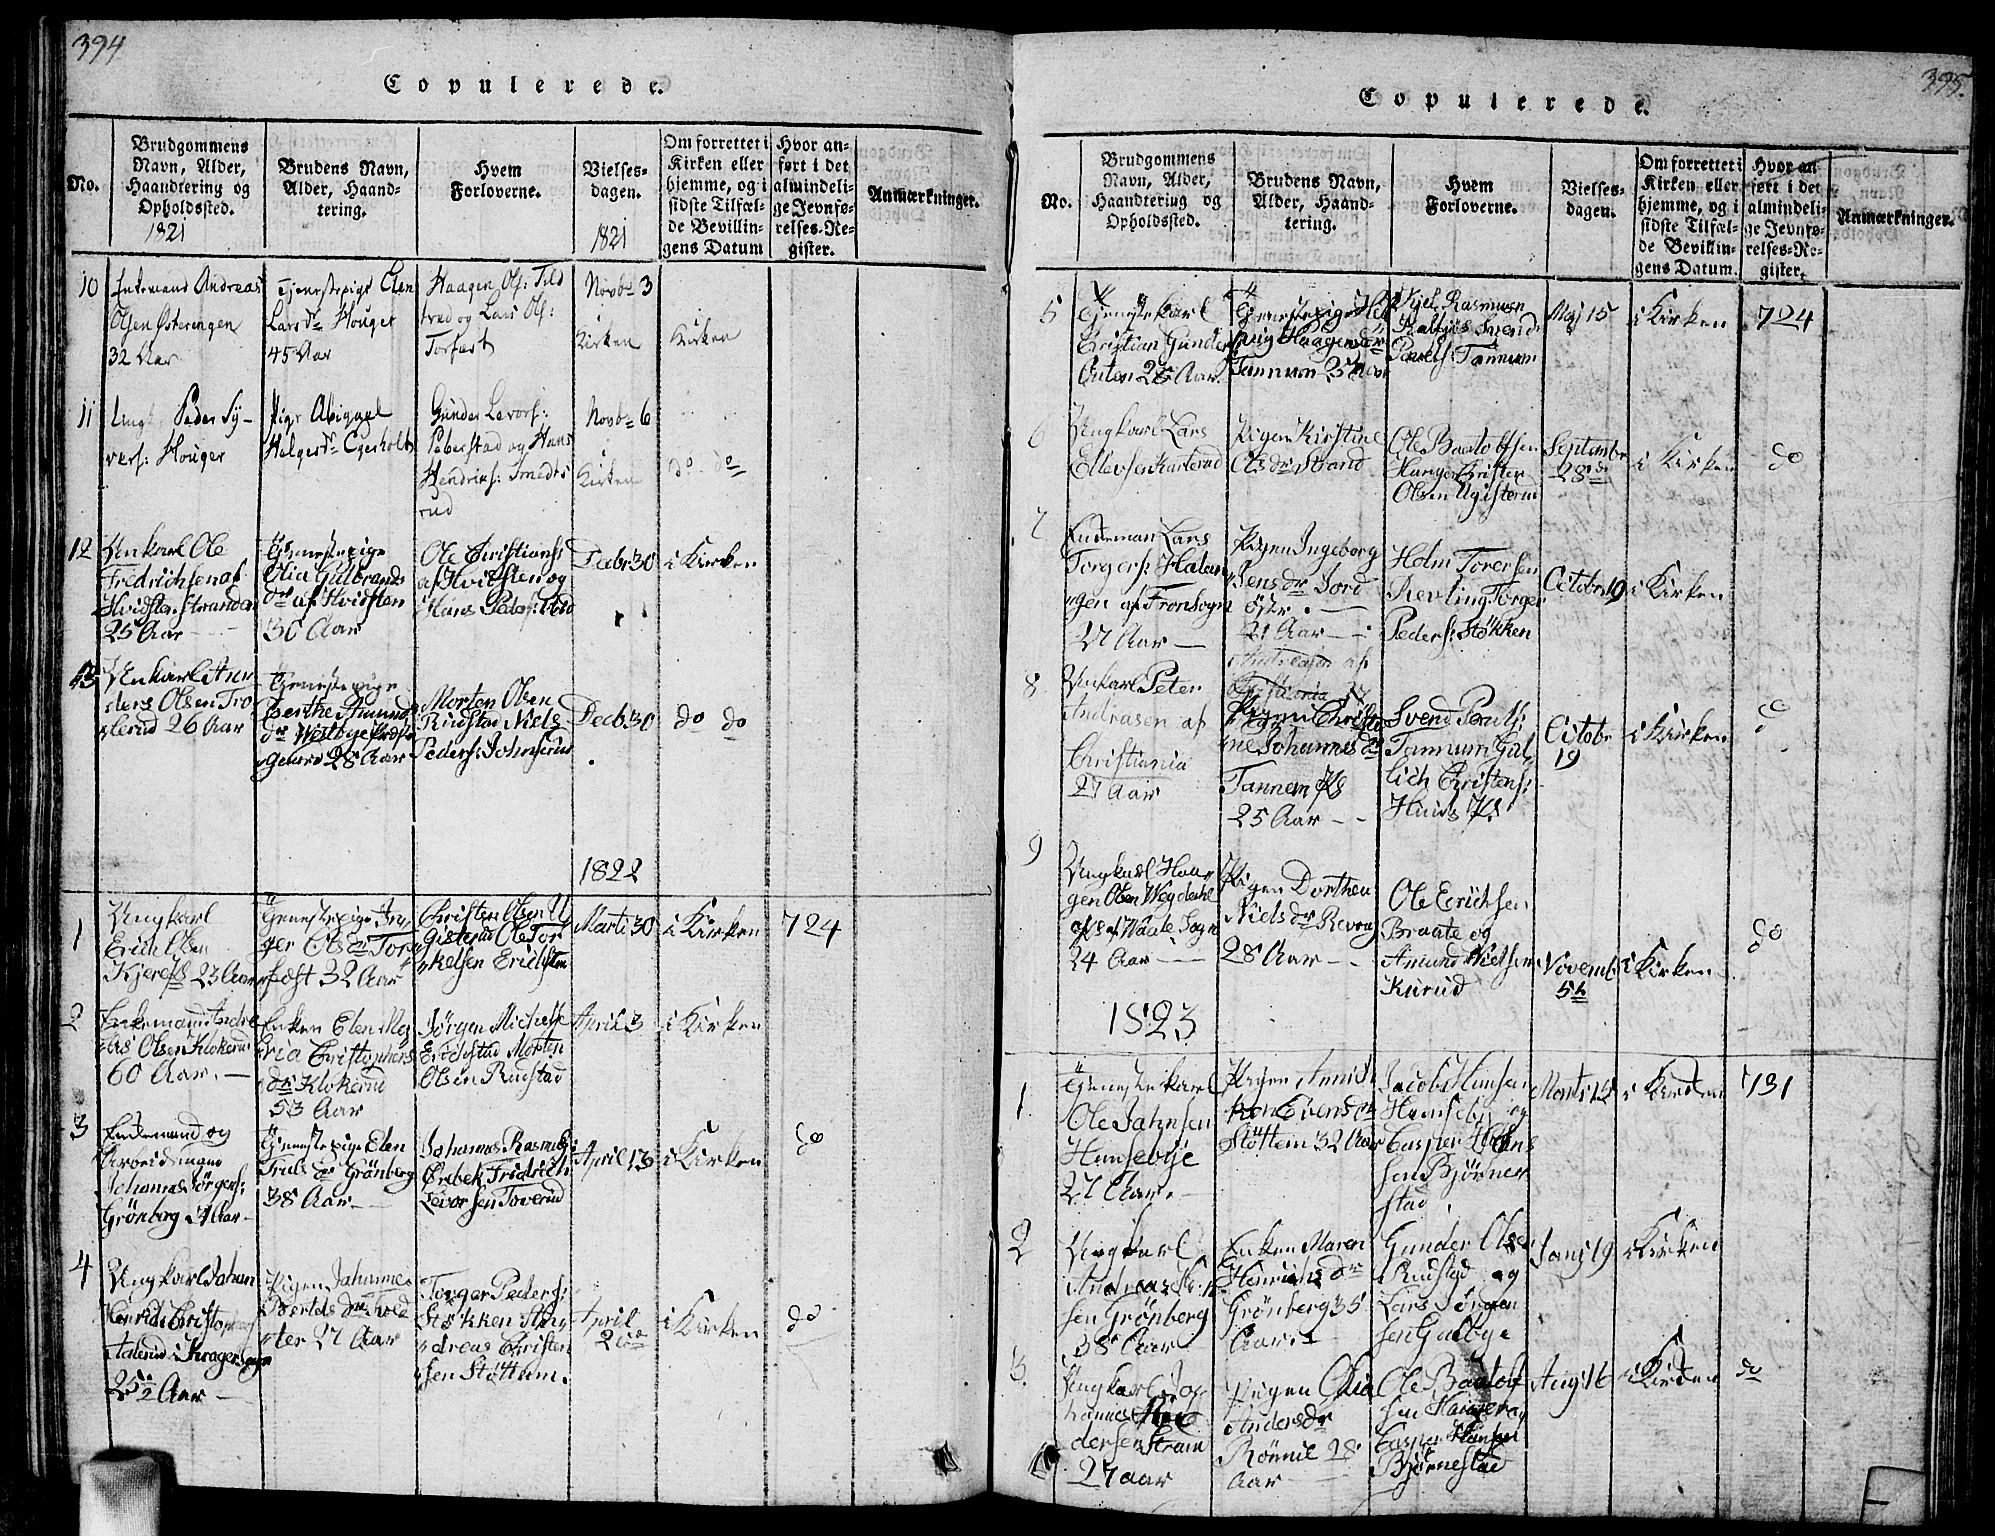 394
Copulerede.
No.
Brudgommens
Navn, Alder,
Haandtering og
Opholdssted.
1821
Brudens Navn,
Alder, Haand-
tering.
Hvem
Forloverne.
Vielses-
dagen.
1821
Om forrettet i
Kirken eller
hjemme, og i
sidste Tilfæl-
de Bevillin-
gens Datum
Hvor an-
ført i det
almindeli-
ge Jevnfø-
relses-Re-
gister.
Anmærkninger.
10
Enkemand Andreas
Olsen Østerengen
32 Aar
Tjenestepige Elen
Larsdr Houger
45 Aar
Haagen Ols: Tild
trad og Lars Ols:
Torfæst
Novbr 3
Kirken
Kirken
11
Ungk Peder Sy-
vers: Houger
Pige Abigael
Helgesdr Egerholt
Gunder Levors:
Peberstad og Hans
Hendrics: Smedts
rud
Novbr 6
Kirken
do do
12
Unkarl Ole
Fredrichsen af
Hvidste Stranden
25 Aar
Tjenestepige
Olia Gulbrands
dr af Hvidsten
30 Aar
Ole Christians
af Hvitsten og
Hans Peders:
Decbr 30
i Kirken
13
Unkarl An
ders Olsen Tro
terud 26 Aar
Tjenestepige
Berthe Amunds
dr Westbye Præste
gaard 28 Aar
Morten Olsen
Rudstad Niels
Peders: Johnserud
Decb. 30
do do
1822
1
Ungkarl
Erich Olsen
Kjere 23 Aar
Tjenestepige In
ger Olsdr Tor
fæst 32 Aar
Christen Olsen U
gisterud Ole Tor
kelsen Erichsten
Marti 30
i Kirken
724
2
Enkemand Andre
as Olsen Klokerud
60 Aar.
Enken Elen Ma
ria Christophers
dr Klokerud
53 Aar
Jørgen Michelse
Erichstad Morten
Olsen Rudstad
April 3
i Kirken
3
Enkemand og
Arbeidsmand
Johannes Jørgens:
Grönberg Aar
Tjenestepige Elen
Trulsdr Grönberg
38 Aar
Johannes Rasmus
Ørebek Fridrich
Levorsen Toverud
April 13
i Kirken
do
4
Ungkarl Johan
Henrich Christop
Aslerud i Krager Sogn
25 1/2 Aar
Pigen Johanne
Bertels dr
ter 27 Aar
Torger Peders:
Støkken An
dreas Christen
sen Støttum.
April
2
i Kirken
do
395.
Copulerede.
No.
Brudgommens
Navn, Alder,
Haandtering og
Opholdssted.
Brudens Navn,
Alder, Haand-
tering.
Hvem
Forloverne.
Vielses-
dagen.
Om forrettet i
Kirken eller
hjemme, og i
sidste Tilfæl-
de Bevillin-
gens Datum.
Hvor an
ført i det
almindeli-
ge Jevnfø-
relses-Re-
gister.
Anmærkninger.
5
Tjenestekarl
Christian Gunder
Outen 28 Aar
Tjenestepige Hel
vig Haagensdr
Tannum
Kjel Rasmusen
Svend
Pavels: Tannum
Maj 15
i Kirken
724
6
Ungkarl Lars
Ellevsen Karlsrud
Pigen Kirstine
Olsdr Strand
Ole Baaloffsen
Hunger Christen
Olsen Ugisterud
September
28de
i Kirken
do
7
Enkeman Lars
Torgers: Halan
gen af Fron Sogn
27 Aar
Pigen Ingeborg
Jensdr Jord
21 Aar
Holm Torersen
Revling Torger
Peders: Støkken
Octobr 19
i Kirken
8
Unkarl Peter
Andrasen af
Christiania
27 Aar
Andreasen af
Christiania 27
Pigen Christi
ne Johannesdr
Tannem
25 Aar
Svend Pauls:
Tannum Gul
lich Christens:
Huids
Octobr
19
i Kirken
do
9
Ungkarl Haa
gen Olsen Wegdahl
af Waale Sogn
24 Aar
Pigen Dorthea
Nielsdr Revoug
28 Aar
Ole Erichsen
Braate og
Amund Nielsen
Kurud
November
5te
i Kirken
do
1823
1.
Tjenestekarl
Ole Jahnsen
Hunsebye
27 Aar.
Pigen Anni
ken Evensdr
Støttem 32 Aar
Jacob Hansen
Hunsebye og
Casper Hans
sen Bjørner
stad
Marts 12
i Kirken
731
2
Ungkarl
Andreas
sen Grønberg
38 Aar
Enken Maren
Henrichsdr
Grønberg 35
Aar
Gunder Olse
Rudstad og
Lars Jørgen
sen Galbye
Janj 19
i Kirken
3.
Ungkarl Jo
hannes
dersen Stram
27 aar
Pigen Olia
Andersdr
Rönnil 28
Aar
Ole Baalof
sen Haugerog
Casper Hansen
Bjørnestad
Aug 16
i Kirken
do